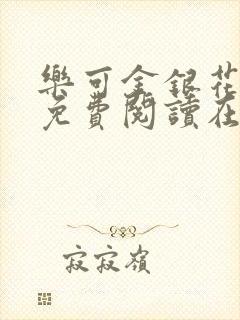 樂可金銀花
免費閱讀在
寂寂嶺